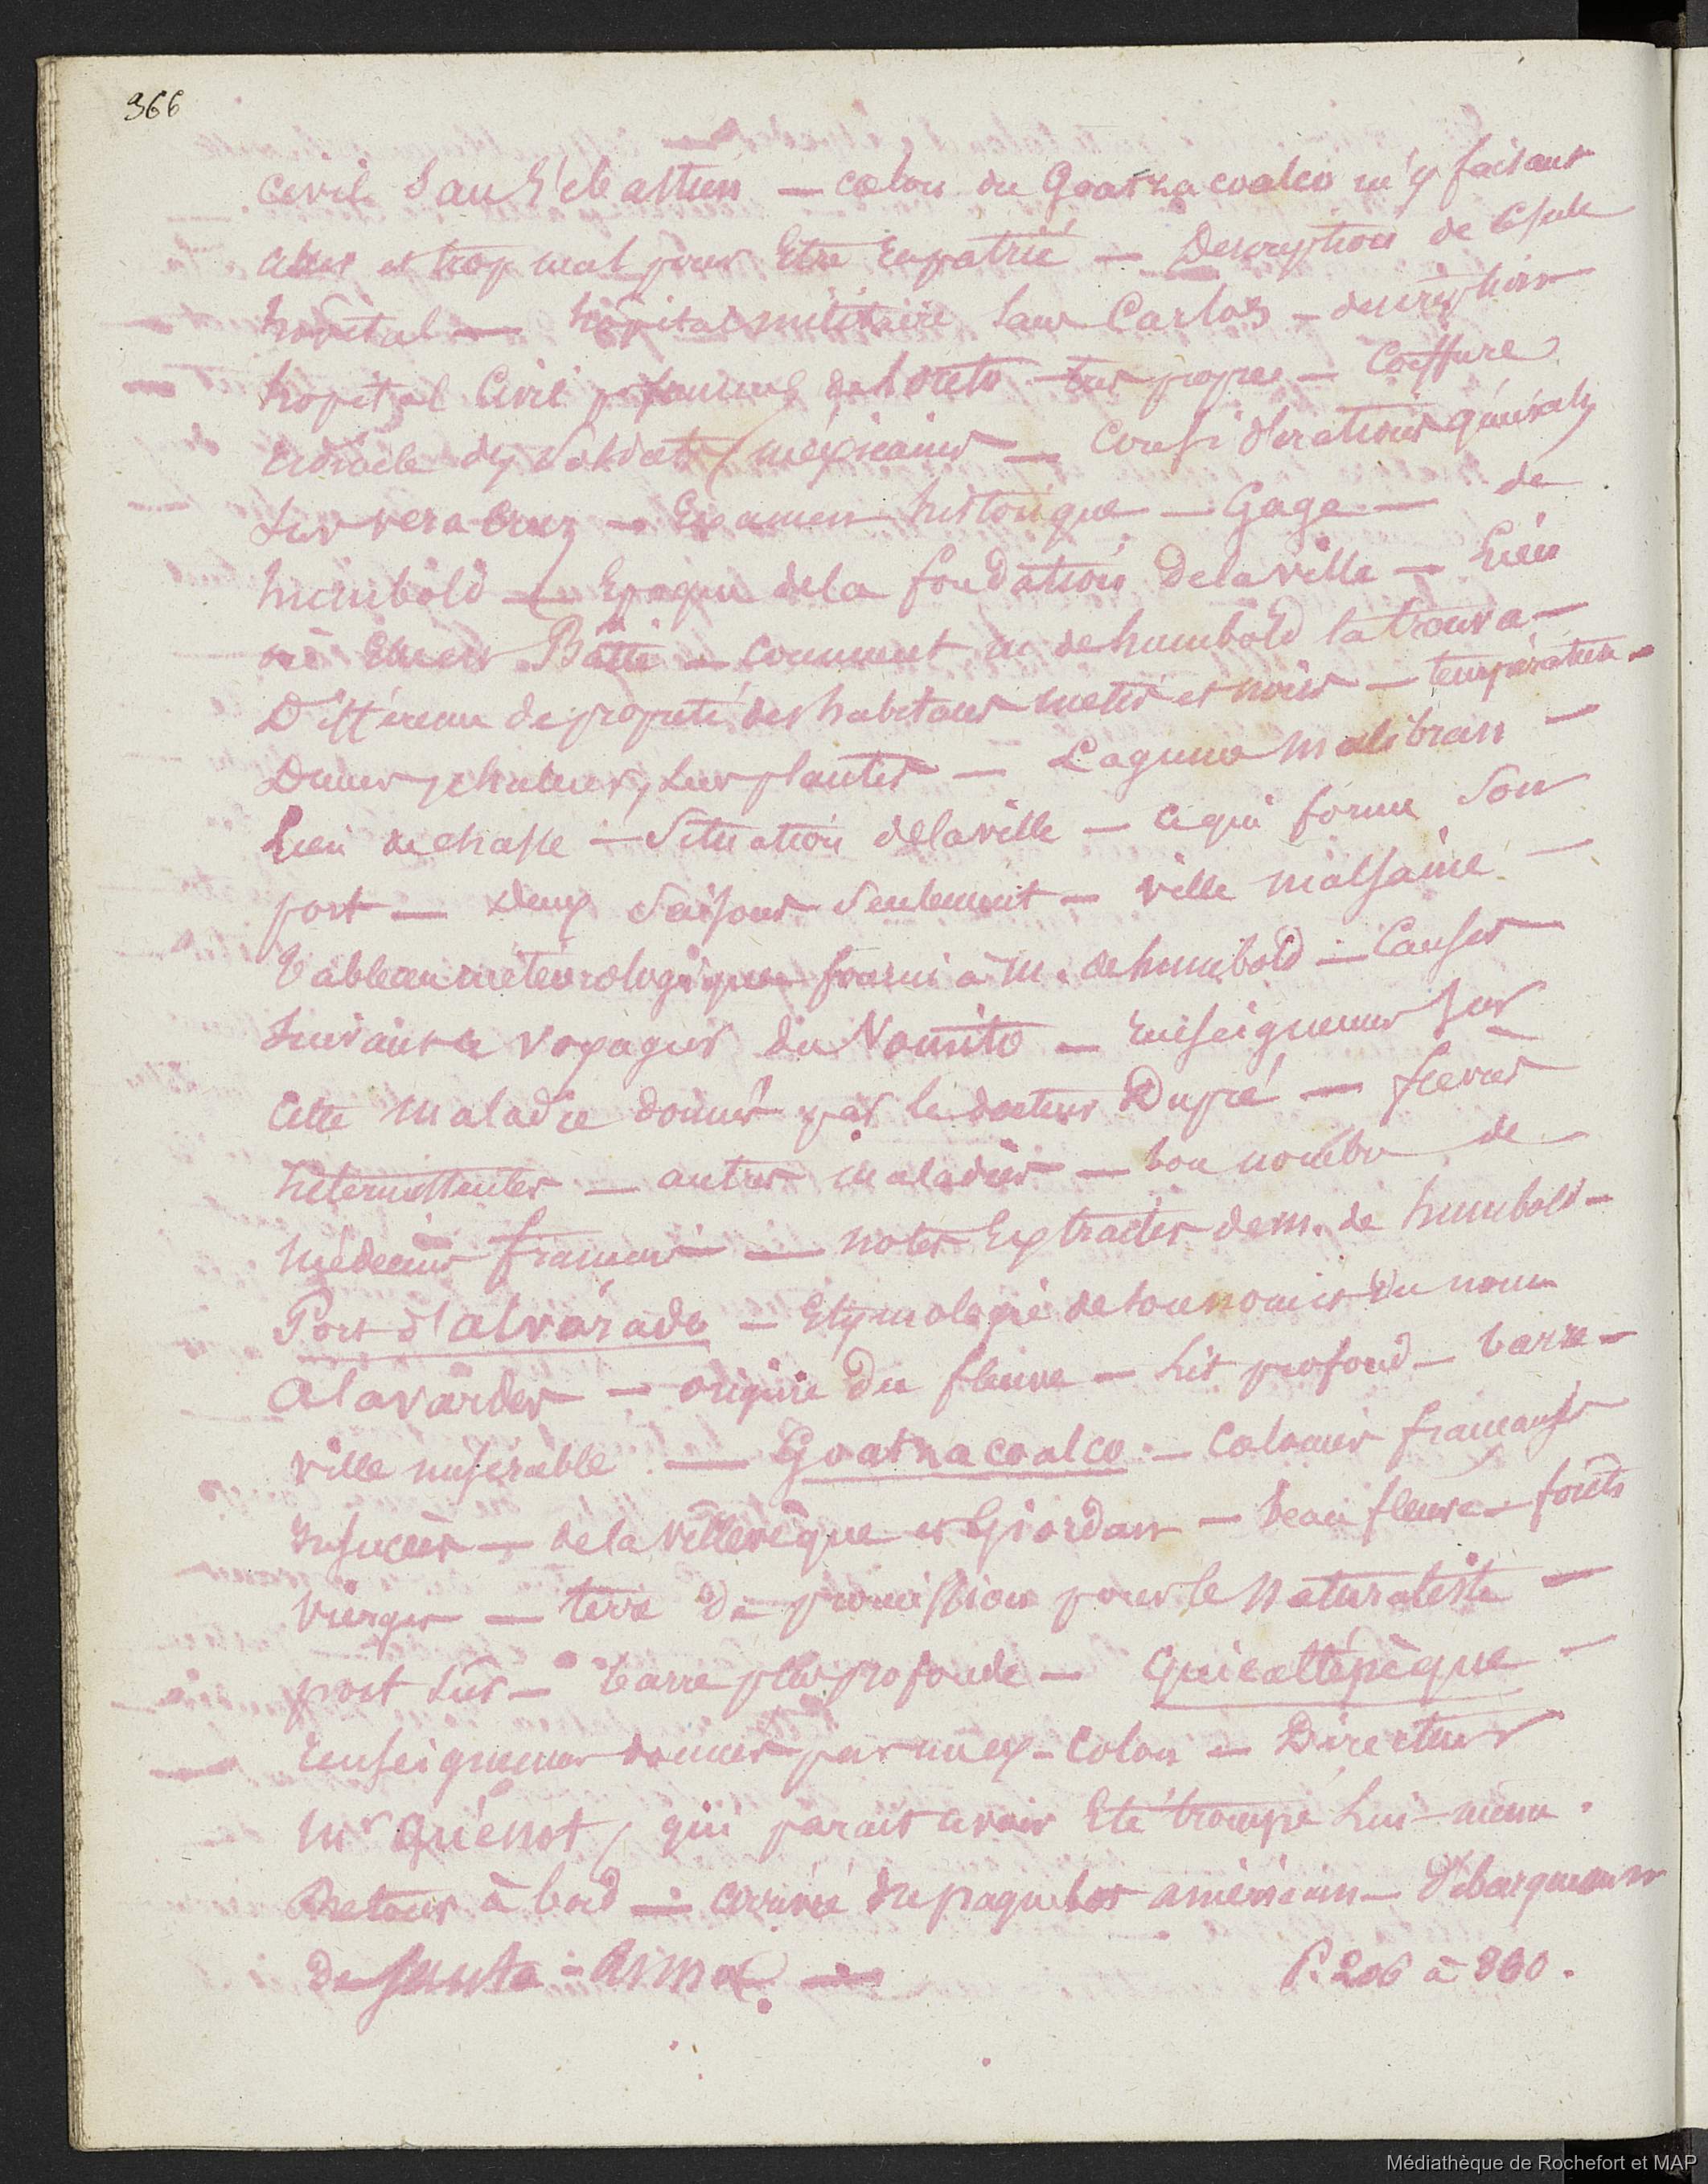 366
civil San Sébastien — colon du Goatzacoalco m'y faisant
et trop mal pour être — Description de
hôpital — hôpital militaire San Carlos — description
hopital Civil pr femmes de Loreto — très propre — Coiffure
ridicule des soldats mexicains — Considérations générales
sur vera Cruz — Examen historique — Gage — de
humbold — Epoque de la fondation de la ville — Lieu
où Batie — comment m. de humbold la trouva —
Différence de propreté des habitans metis et noirs — température —
Dunes, chaleur, leurs plantes — Lagune malibran —
Lieu de chasse — Situation de la ville — ce qui forme son
port — deux saisons seulement — ville malsaine —
Tableau météorologique fourni à M. de humbold — Causes
suivant ce voyageur du Vomito — renseignemens sur
cette maladie donnés par le docteur Dupré — fièvres
intermittentes — autres maladies — bon nombre de
médecins francais — notes Extraites de m. de humbold —
Port d'alvarado — Etymologie de son nom et du nom
Alavarder — origine du fleuve — Lit profond — barre —
ville misérable — Goatzacoalco — Colonies francaises
insuccès — de la villevêque et Giordan — beau fleuve — forêts
vierges — terre de promission pour le naturaliste —
port sûr — barre plus profonde — Quicaltépèque —
renseignemens donnés par un ex-colon — Directeur
Mr Guénot, qui parait avoir Eté trompé Lui-même.
Retour à bord — arrivée du paquebot américain — débarquement
de Santa-Anna. — P. 206 à 330.
Médiathèque de Rochefort et MAP